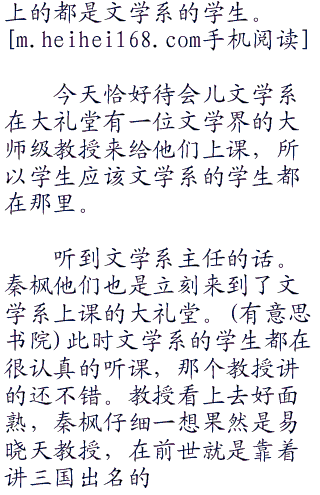 上的都是文学系的学生。
[m.heihei168.com手机阅读]
今天恰好待会儿文学系
在大礼堂有一位文学界的大
师级教授来给他们上课，所
以学生应该文学系的学生都
在那里。
听到文学系主任的话。
秦枫他们也是立刻来到了文
学系上课的大礼堂。(有意思
书院)此时文学系的学生都在
很认真的听课，那个教授讲
的还不错。教授看上去好面
熟，秦枫仔细一想果然是易
晓天教授，在前世就是靠着
讲三国出名的